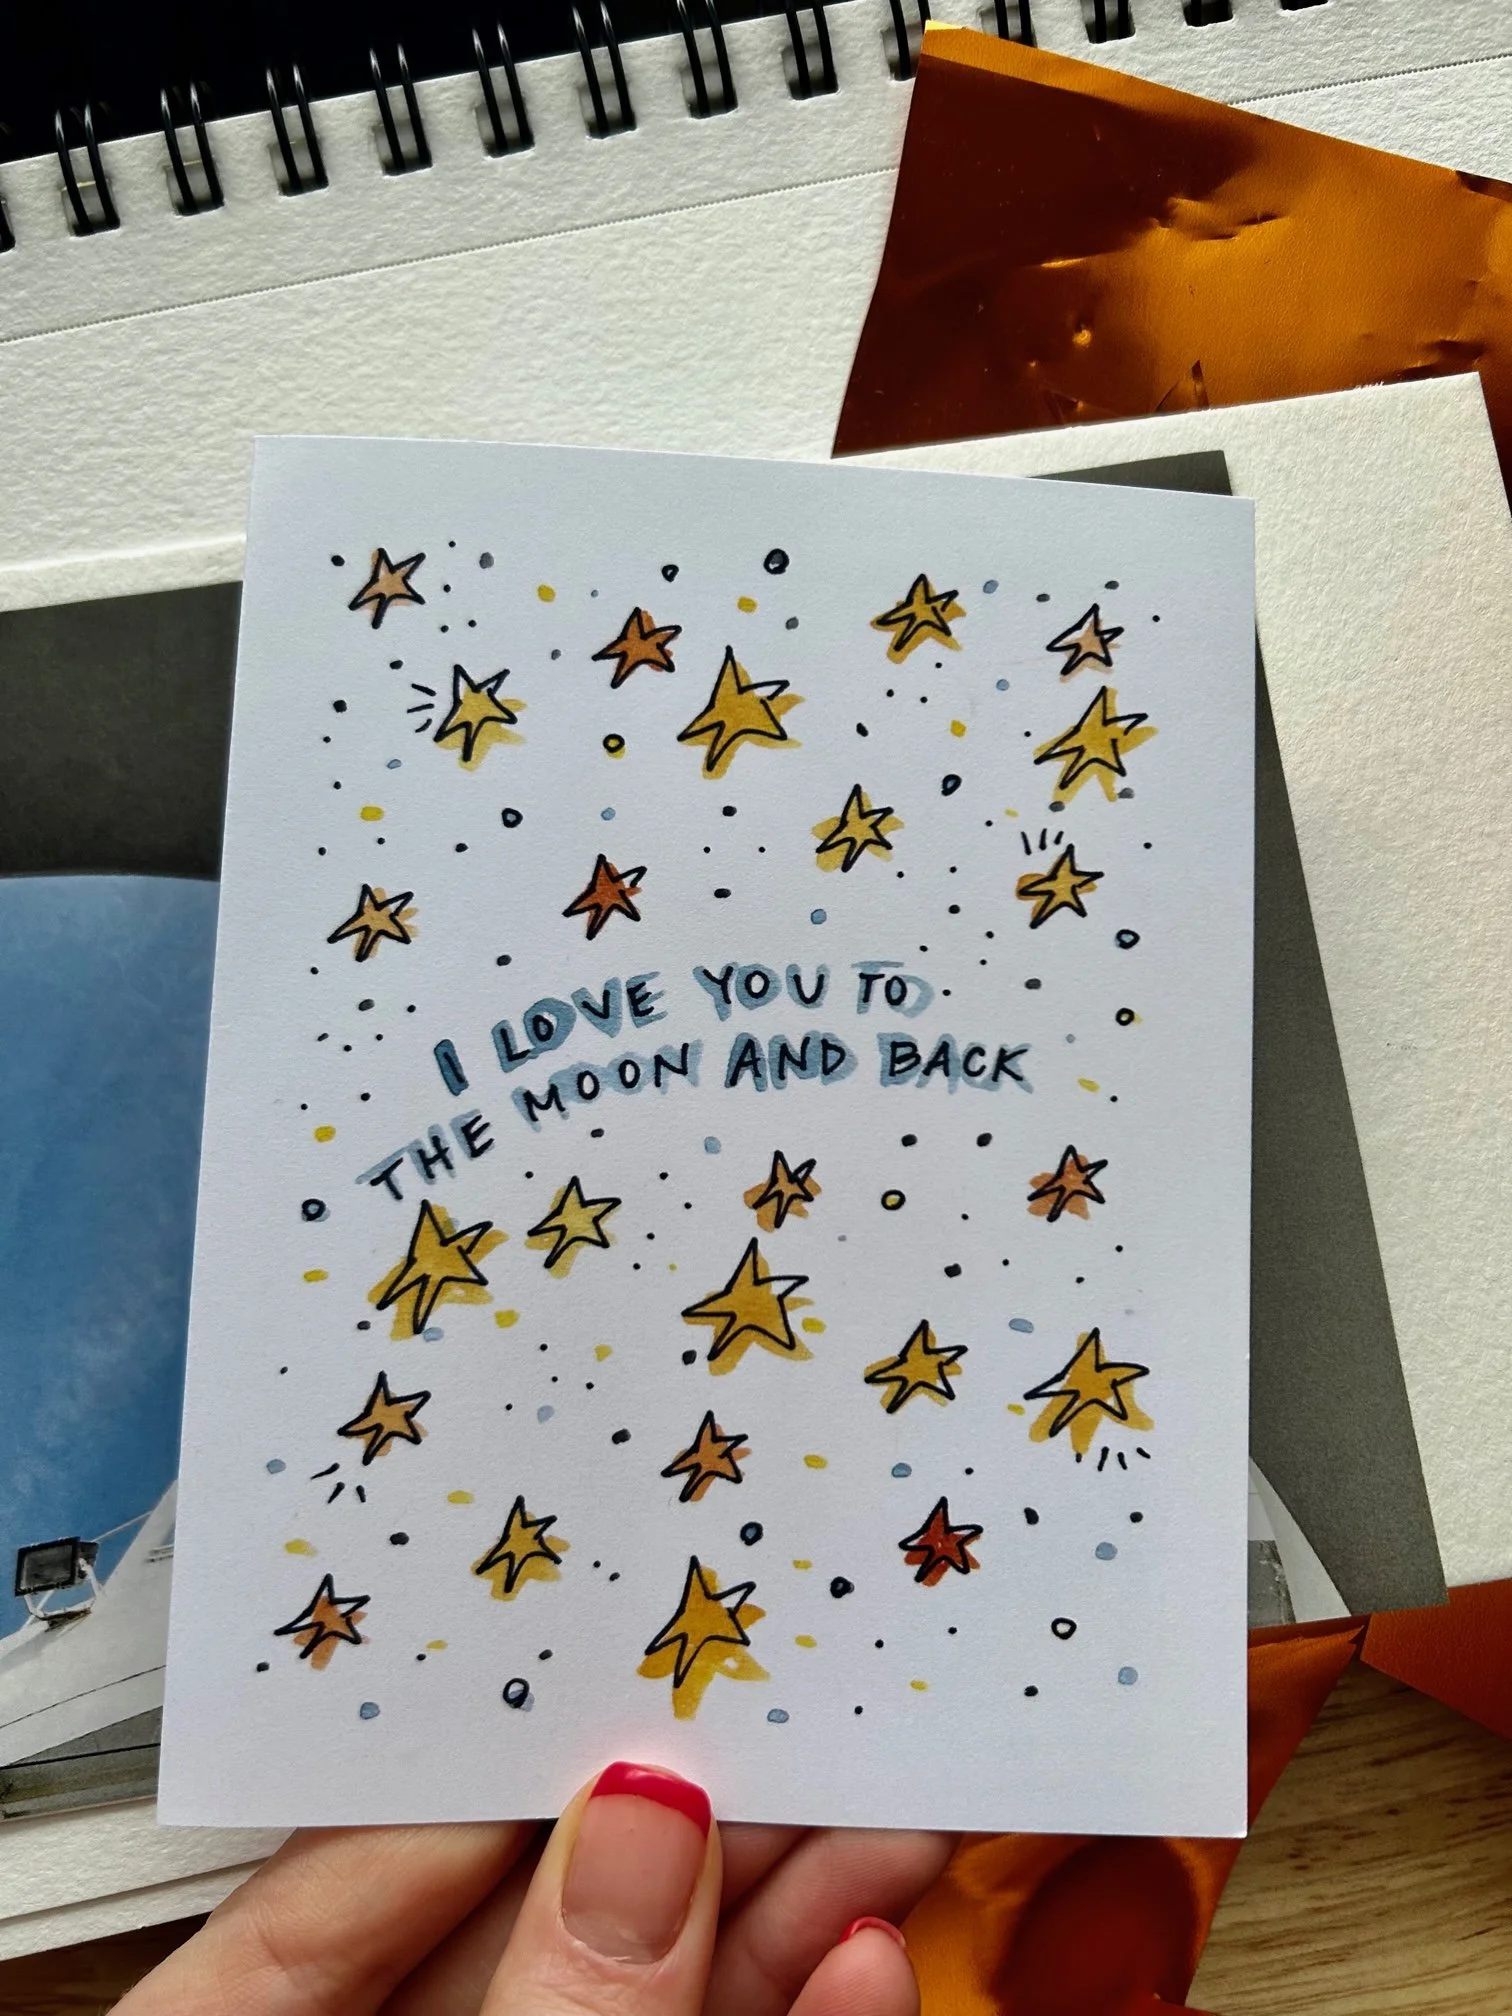 I LOVE YOU TO
THE MOON AND BACK